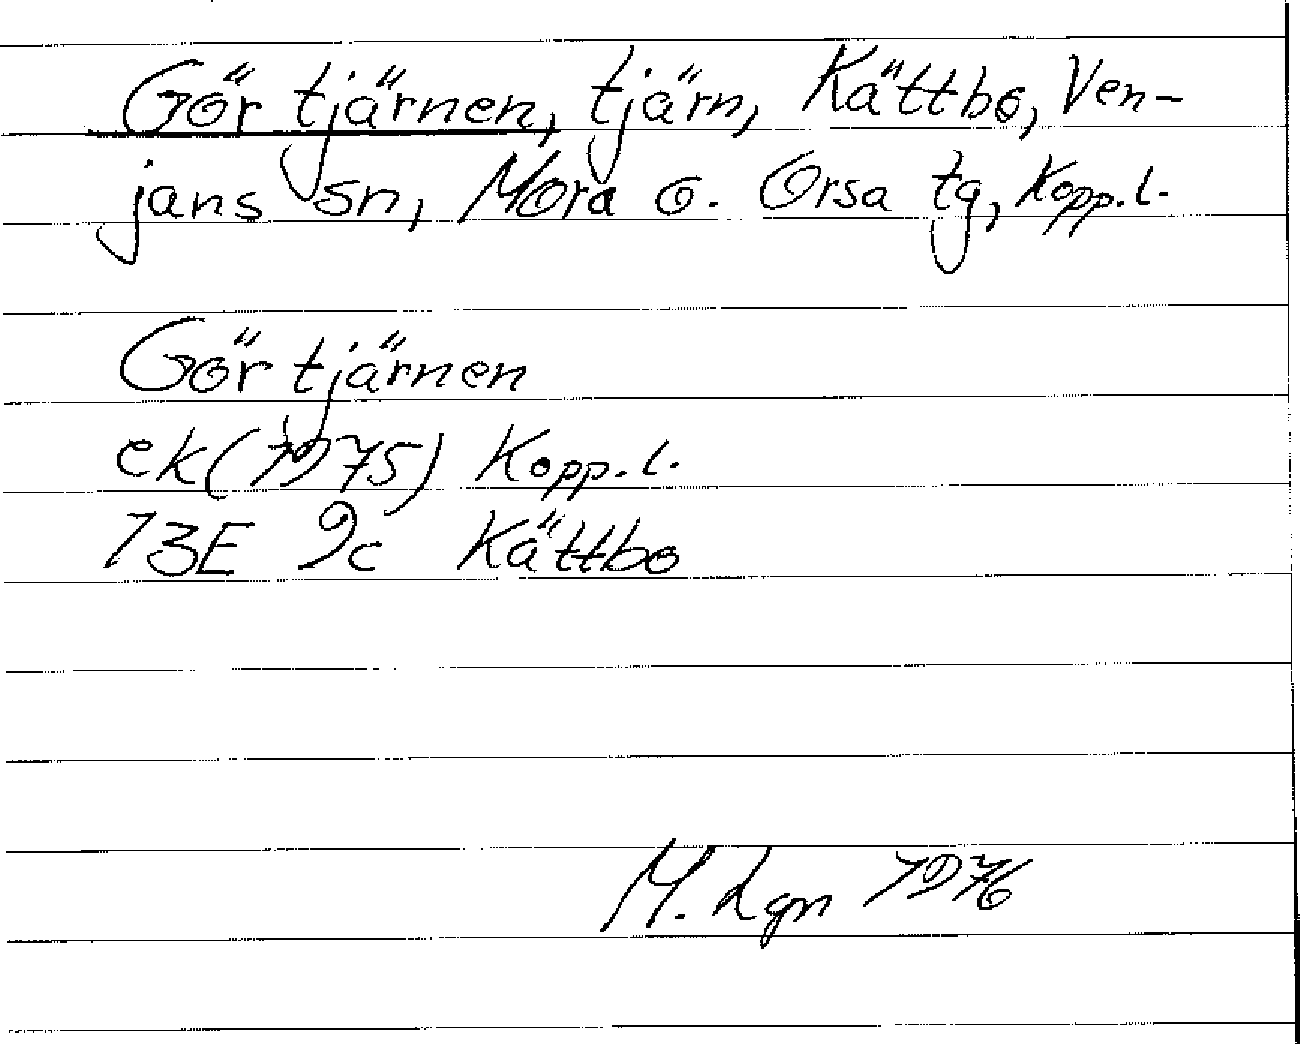 Görtjärnen, tjärn, Kättbo, Ven-
jans sn, Mora o. Orsa tg, Kopp.l.
Görtjärnen
ek(1975) Kopp.l.
13E 9c Kättbo
M. Lgn 1976